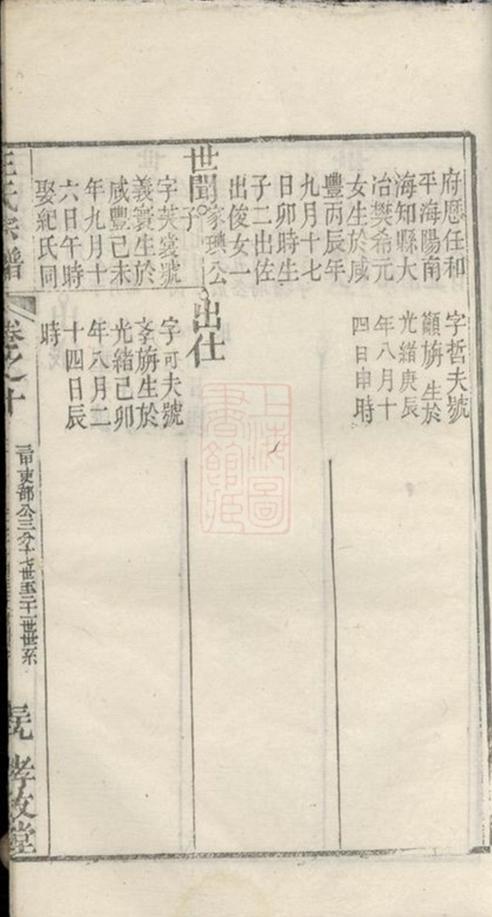 府歷任和
平海陽南
海知縣大
冶樊希元
女生於咸
豐丙辰年
九月十七
日卯時生
子二出佐
出俊女一
字哲夫號
顓旃生於
光緒庚辰
年八月十
四日申時
世聞
家璵公
子
字芙裳號
義寰生於
咸豐己未
年九月十
六日午時
娶紀氏同
出仕
字可夫號
孝旃生於
光緒己卯
年八月二
十四日辰
時
王氏宗譜
卷之十
吏部公三分十七世至二十一世世系
孝友堂
上海圖書館藏